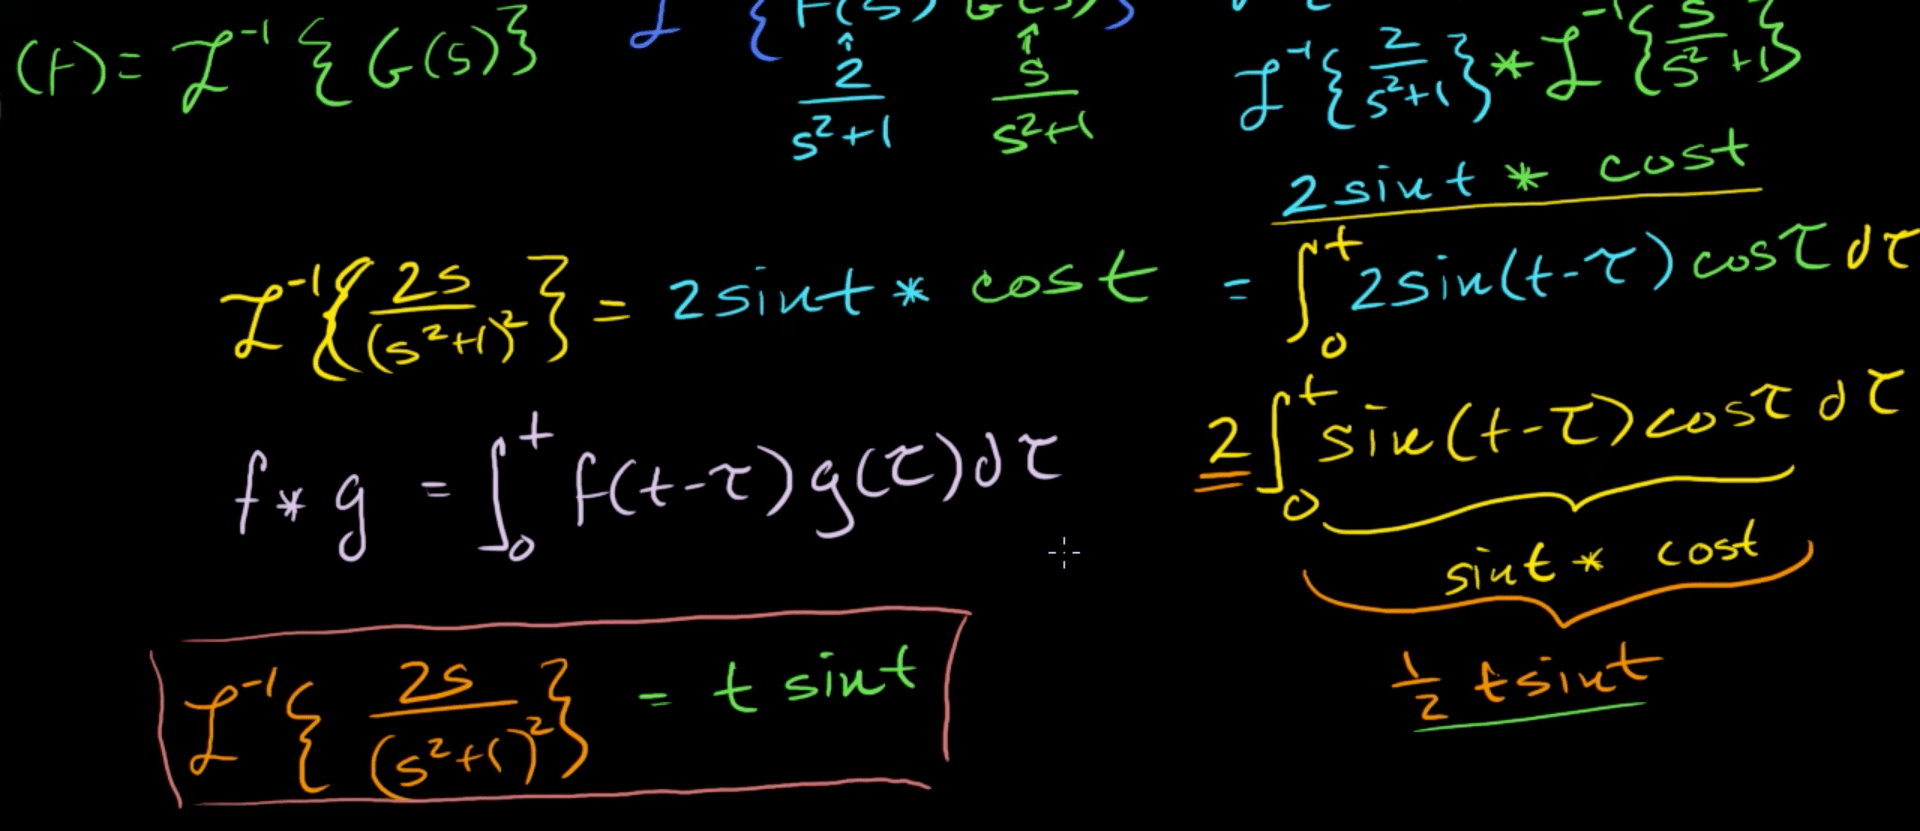 (t) = ℒ⁻¹{G(s)}
ℒ {F(s) G(s)}
2/(s²+1) s/(s²+1)
ℒ⁻¹{2/(s²+1)} * ℒ⁻¹{s/(s²+1)}
2 sin t * cos t
ℒ⁻¹{2s/(s²+1)²} = 2 sin t * cos t = ∫₀ᵗ 2 sin(t-τ) cos τ dτ
f * g = ∫₀ᵗ f(t-τ) g(τ) dτ
2 ∫₀ᵗ sin(t-τ) cos τ dτ
sin t * cos t
ℒ⁻¹{2s/(s²+1)²} = t sin t
1/2 t sin t